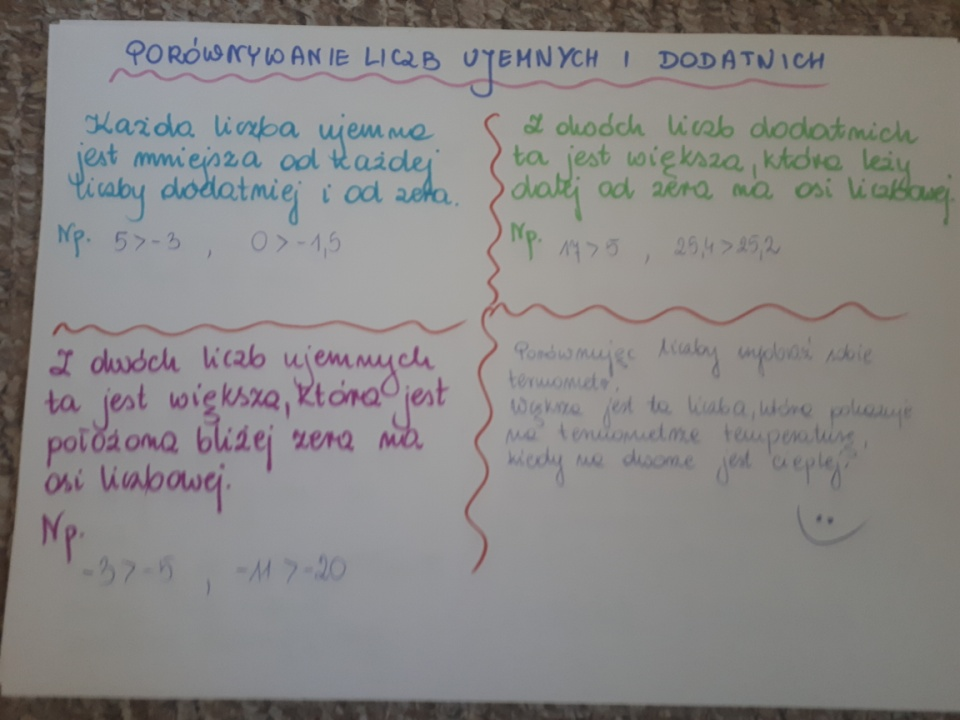 PORÓWNYWANIE LICZB UJEMNYCH I DODATNICH
Każda liczba ujemna
jest mniejsza od każdej
liczby dodatniej i od zera.
Np. 5>-3 , 0>-1,5
Z dwóch liczb dodatnich
ta jest większa, która leży
dalej od zera na osi liczbowej.
Np. 17>5 , 25,4>25,2
Z dwóch liczb ujemnych
ta jest większa, która jest
położona bliżej zera na
osi liczbowej.
Np.
-3>-5 , -11>-20
Porównując liczby wyobraź sobie
termometr.
Większa jest ta liczba, która pokazuje
na termometrze temperaturę,
kiedy na dworze jest cieplej.